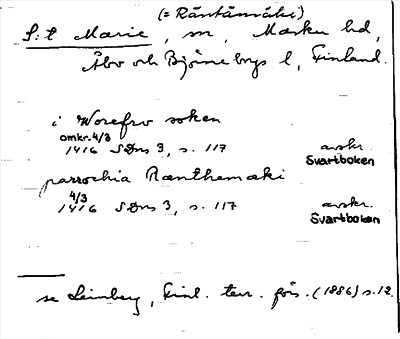 (= Räntämäki)
S:t Marie, sn, Masku hd,
Åbo och Björneborgs l, Finland.
i Worefrv soken
omkr. 4/3
1416 SDns 3, s. 117 avskr. Svartboken
parrochia Ranthemæki
4/3
1416 SDns 3, s. 117 avskr. Svartboken
se Leinberg, Finl. terr. förs. (1886) s. 12.